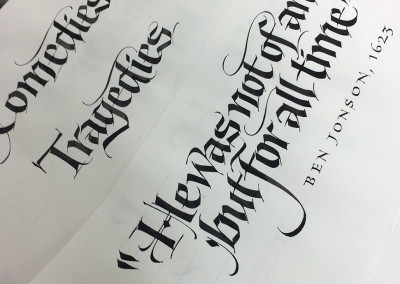 Comedies
Tragedies
"He was not of an
but for all time
BEN JONSON, 1623